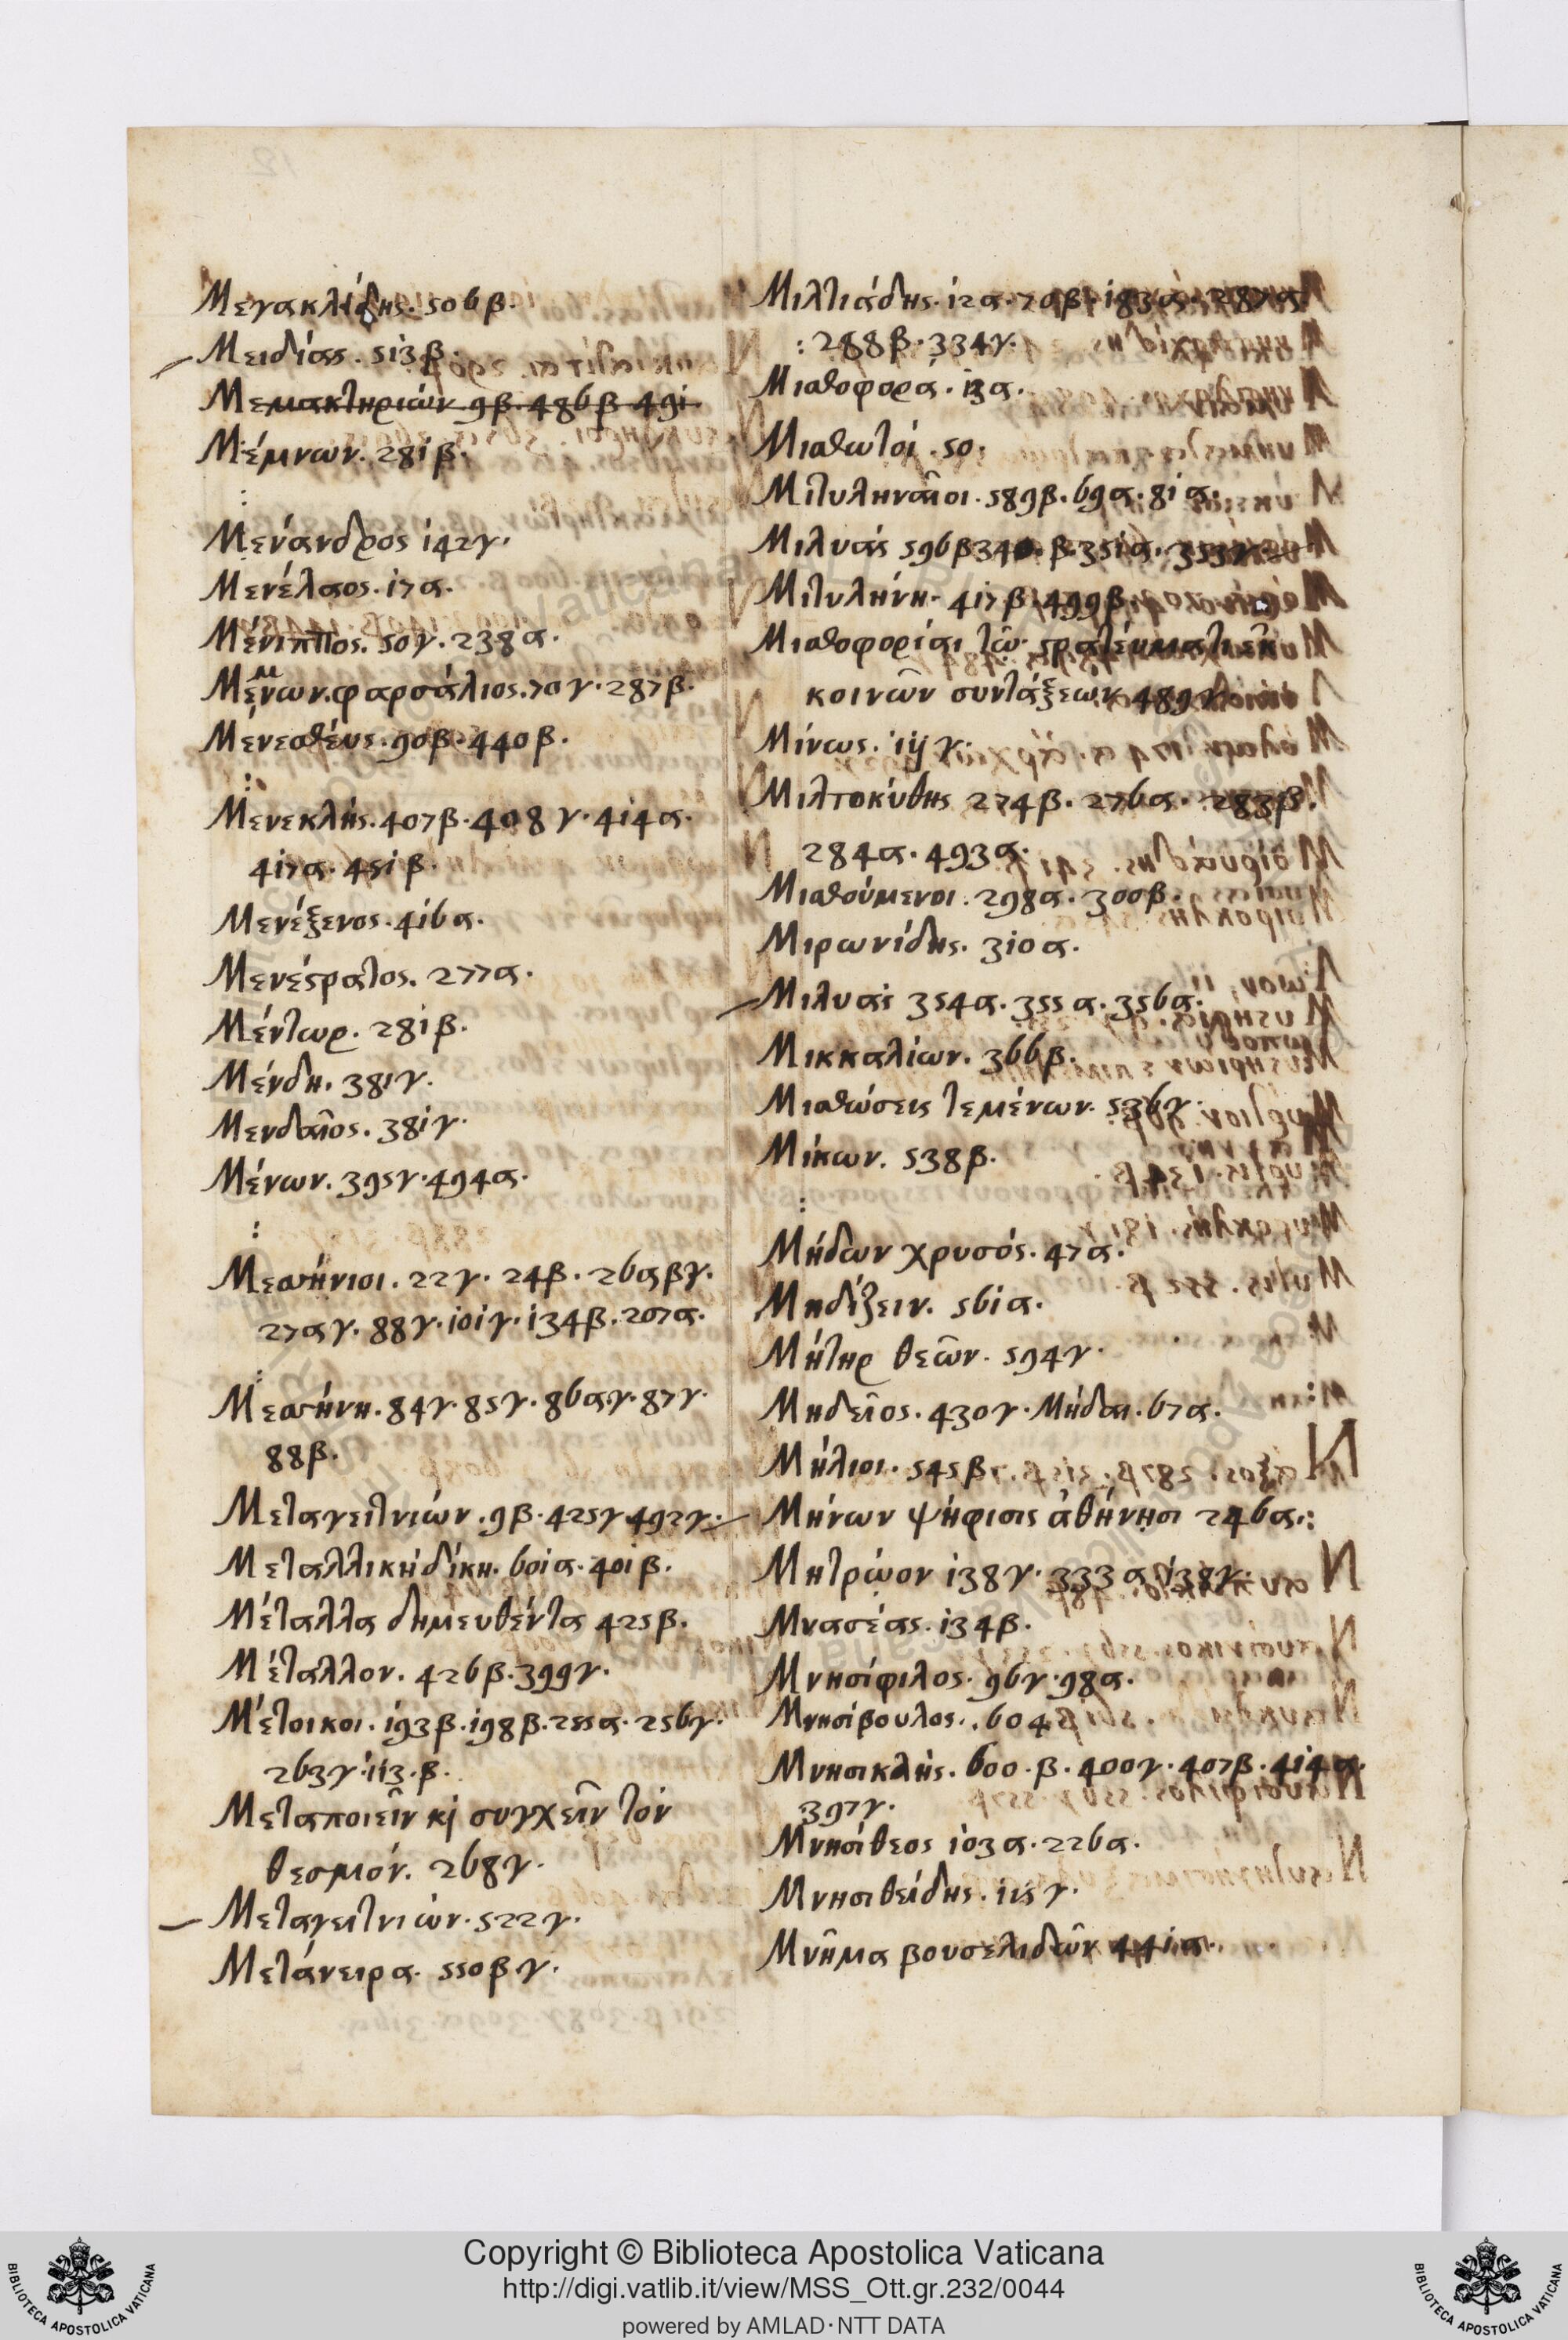 Μεγακλείδης. 506β.
Μειδίας. 513β.
Μεμακτηριών 9β. 486β 491.
Μέμνων. 281β.
:
Μένανδρος 142γ.
Μενέλαος. 17α.
Μένιππος. 50γ. 238α.
Μένων. φαρσάλιος. 70γ. 287β.
Μενεσθέυς. 90β. 440β.
:
Μενεκλής. 407β. 408γ. 414α.
417α. 451β.
Μενέξενος. 416α.
Μενέστρατος. 277α.
Μέντωρ. 281β.
Μένδη. 381γ.
Μενδαῖος. 381γ.
Μένων. 395γ. 494α.
:
Μεσσήνιοι. 22γ. 24β. 26αβγ.
27αγ. 88γ. 101γ. 134β. 207α.
:
Μεσσήνη. 84γ. 85γ. 86αγ. 87γ.
88β.
Μεταγειτνιών. 9β. 425γ 492γ.
Μεταλλική δίκη. 601α. 401β.
Μέταλλα δημευθέντα 425β.
Μέταλλον. 426β. 399γ.
Μέτοικοι. 193β. 198β. 255α. 256γ.
263γ. 113.β.
Μεταποιεῖν κὶ συγχεῖν τὸν
θεσμόν. 268γ.
Μεταγειτνιών. 522γ.
Μετάνειρα. 550βγ.
Μιλτιάδης. 12α. 70β. 183α. 287α
: 288β. 334γ.
Μισθοφορά. 13α.
Μισθωτοί. 50.
Μιτυληναῖοι. 589β. 69α. 81α.
Μιλυάς 596β 340. β. 351α. 353γ.
Μιτυλήνη. 417β. 499β.
Μισθοφορίαι τῶ στρατέυματι ἐκ
κοινῶν συντάξεων 489γ.
Μίνως. 11γ.
Μιλτοκύθης 274β. 276α. 283β.
284α. 493α.
Μισθούμενοι. 298α. 300β.
Μιρωνίδης. 310α.
Μιλυάς 354α. 355α. 356α.
Μικκαλίων. 366β.
Μισθώσεις τεμένων. 536γ.
Μίκων. 538β.
:
Μήδων χρυσός. 47α.
Μηδίζειν. 561α.
Μήτηρ θεῶν. 594γ.
Μηδεῖος. 430γ. Μήδοι. 67α.
Μήλιοι. 545β.
Μήνων ψήφισις ἀθήνησι 246α.:
Μητρῷον 138γ. 333α 138γ.
Μνασέας. 134β.
Μνησίφιλος. 96γ. 98α.
Μνησίβουλος. 604
Μνησικλῆς. 600.β. 400γ. 407β. 414α.
397γ.
Μνησίθεος 103α. 226α.
Μνησιθείδης. 115γ.
Μνῆμα βουσελιδῶν 441α.
Copyright © Biblioteca Apostolica Vaticana
http://digi.vatlib.it/view/MSS_Ott.gr.232/0044
powered by AMLAD·NTT DATA
BIBLIOTECA APOSTOLICA VATICANA
BIBLIOTECA APOSTOLICA VATICANA